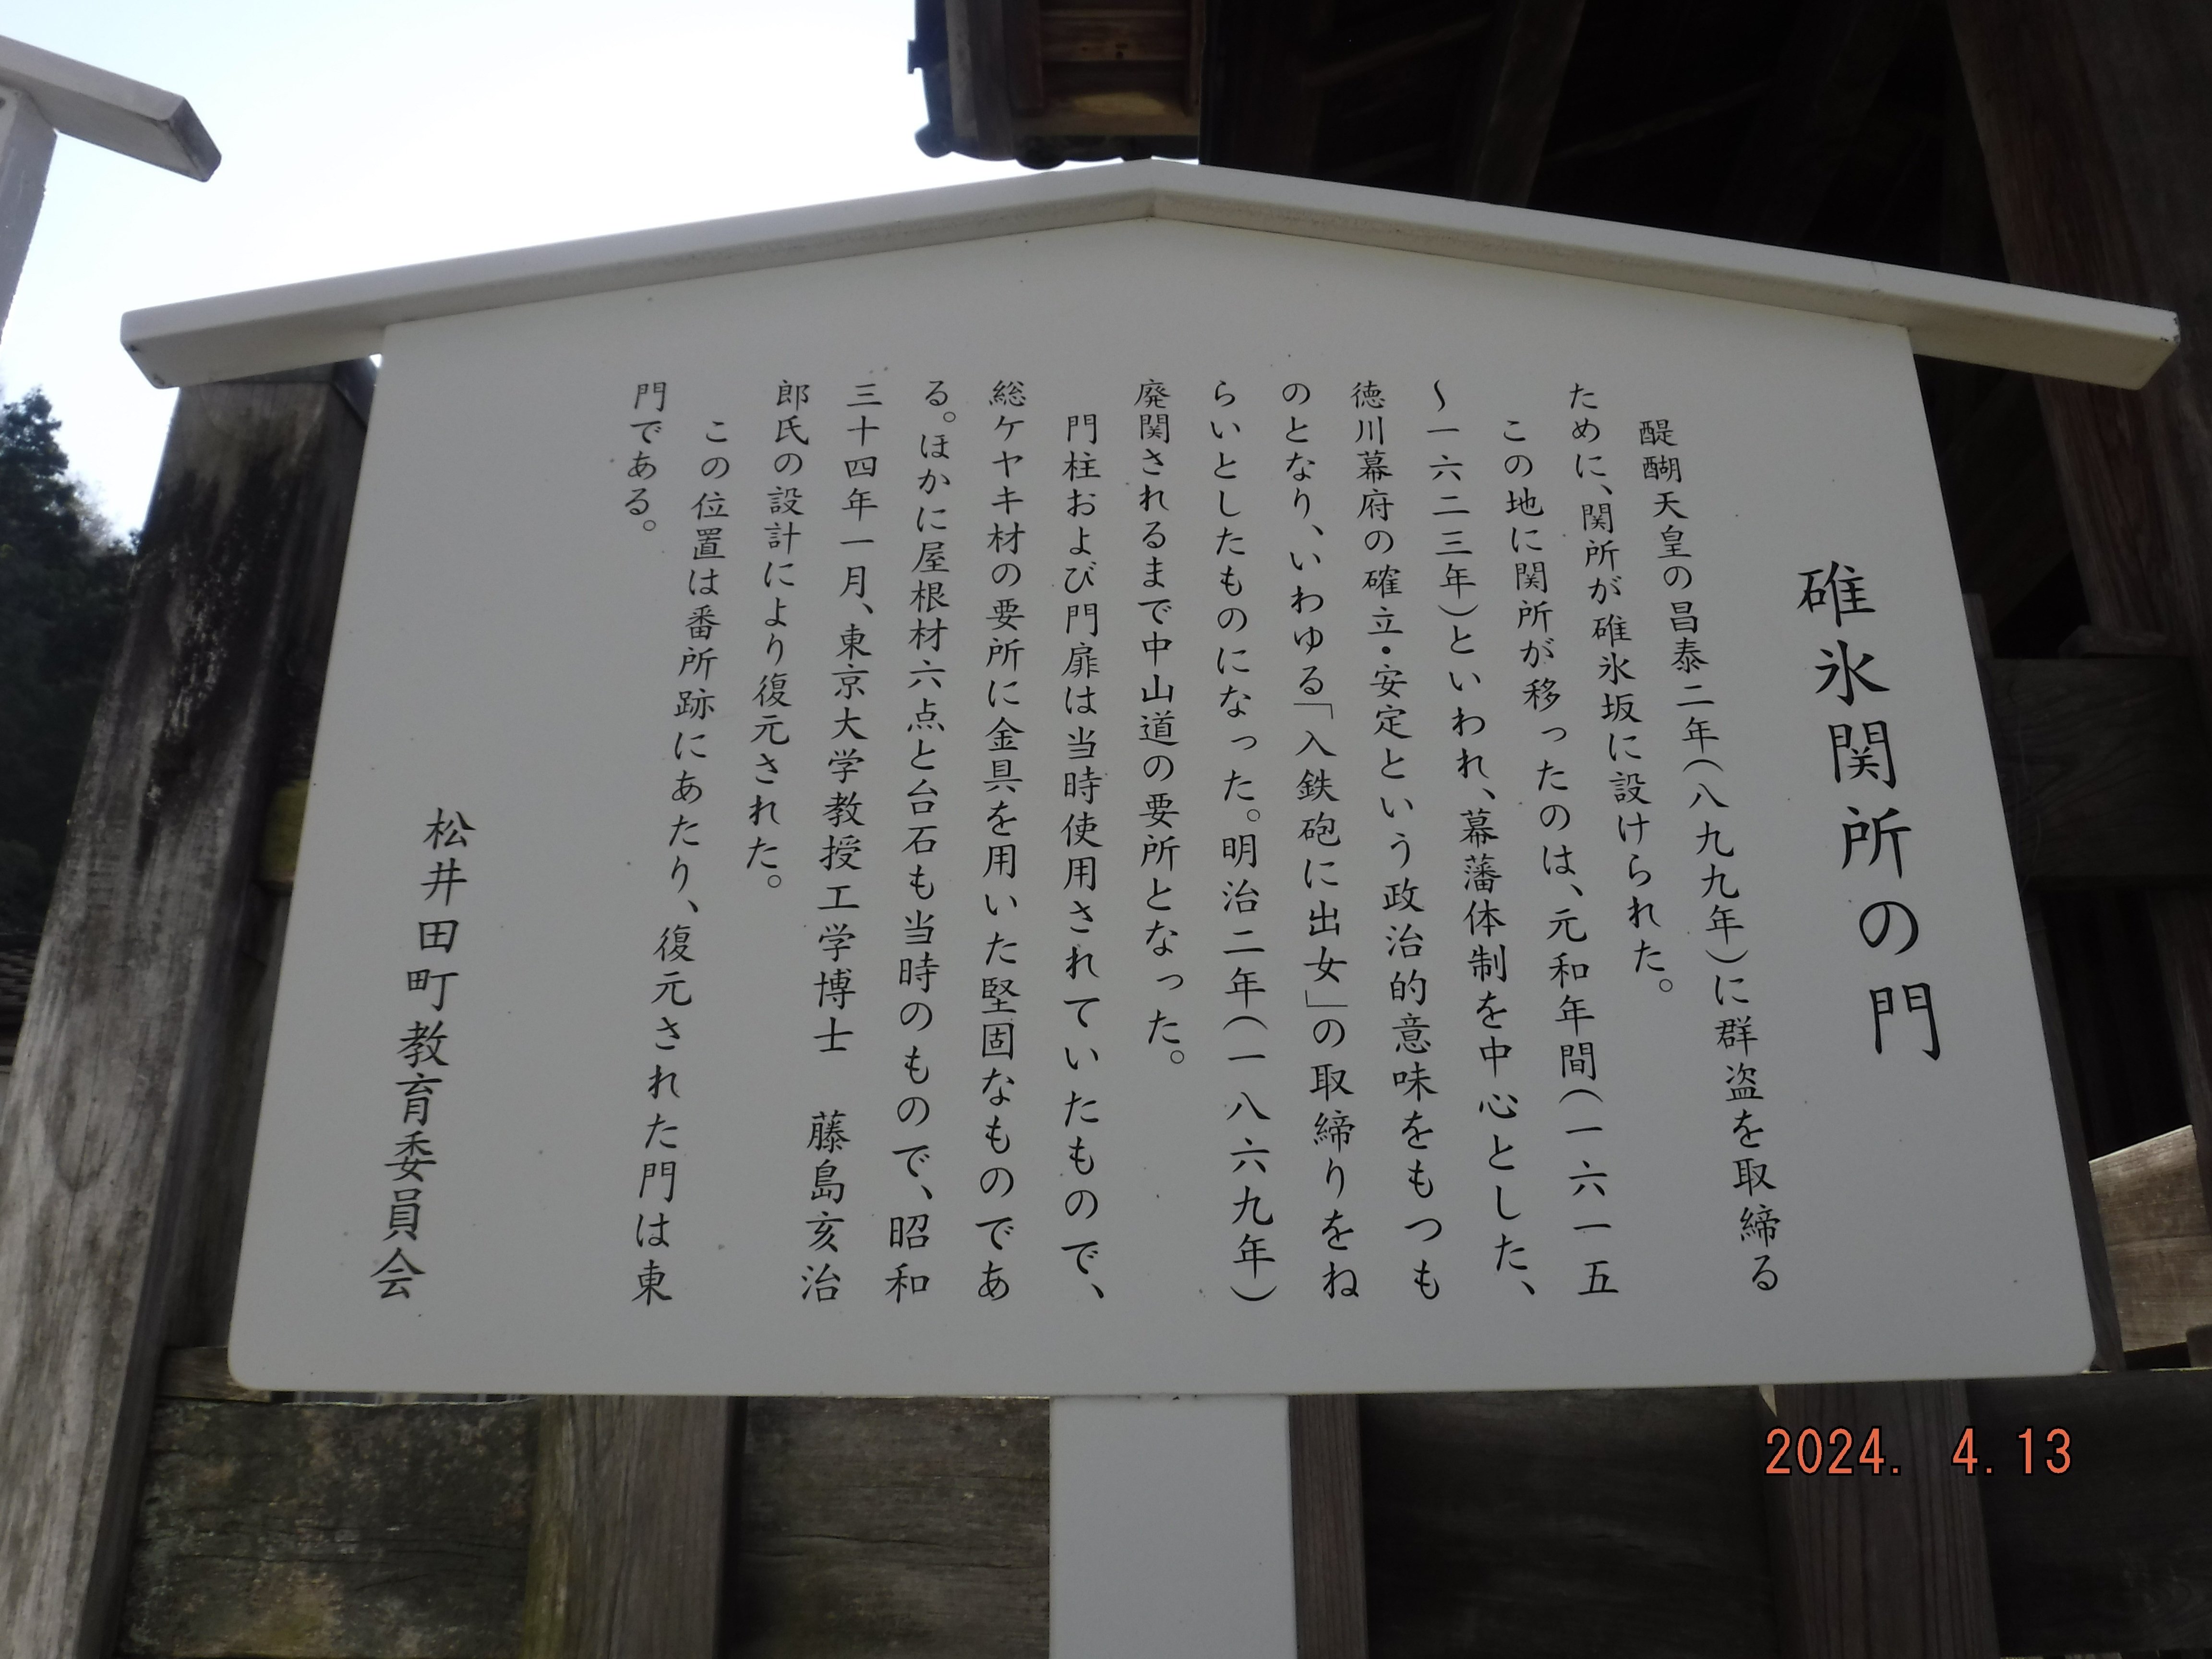 碓氷関所の門
醍醐天皇の昌泰二年(八九九年)に群盗を取締る
ために、関所が碓氷坂に設けられた。
この地に関所が移ったのは、元和年間(一六一五
〜一六二三年)といわれ、幕藩体制を中心とした、
徳川幕府の確立・安定という政治的意味をもつも
のとなり、いわゆる「入鉄砲に出女」の取締りをね
らいとしたものになった。明治二年(一八六九年)
廃関されるまで中山道の要所となった。
門柱および門扉は当時使用されていたもので、
総ケヤキ材の要所に金具を用いた堅固なものであ
る。ほかに屋根材六点と台石も当時のもので、昭和
三十四年一月、東京大学教授工学博士　藤島亥治
郎氏の設計により復元された。
この位置は番所跡にあたり、復元された門は東
門である。
松井田町教育委員会
2024. 4.13